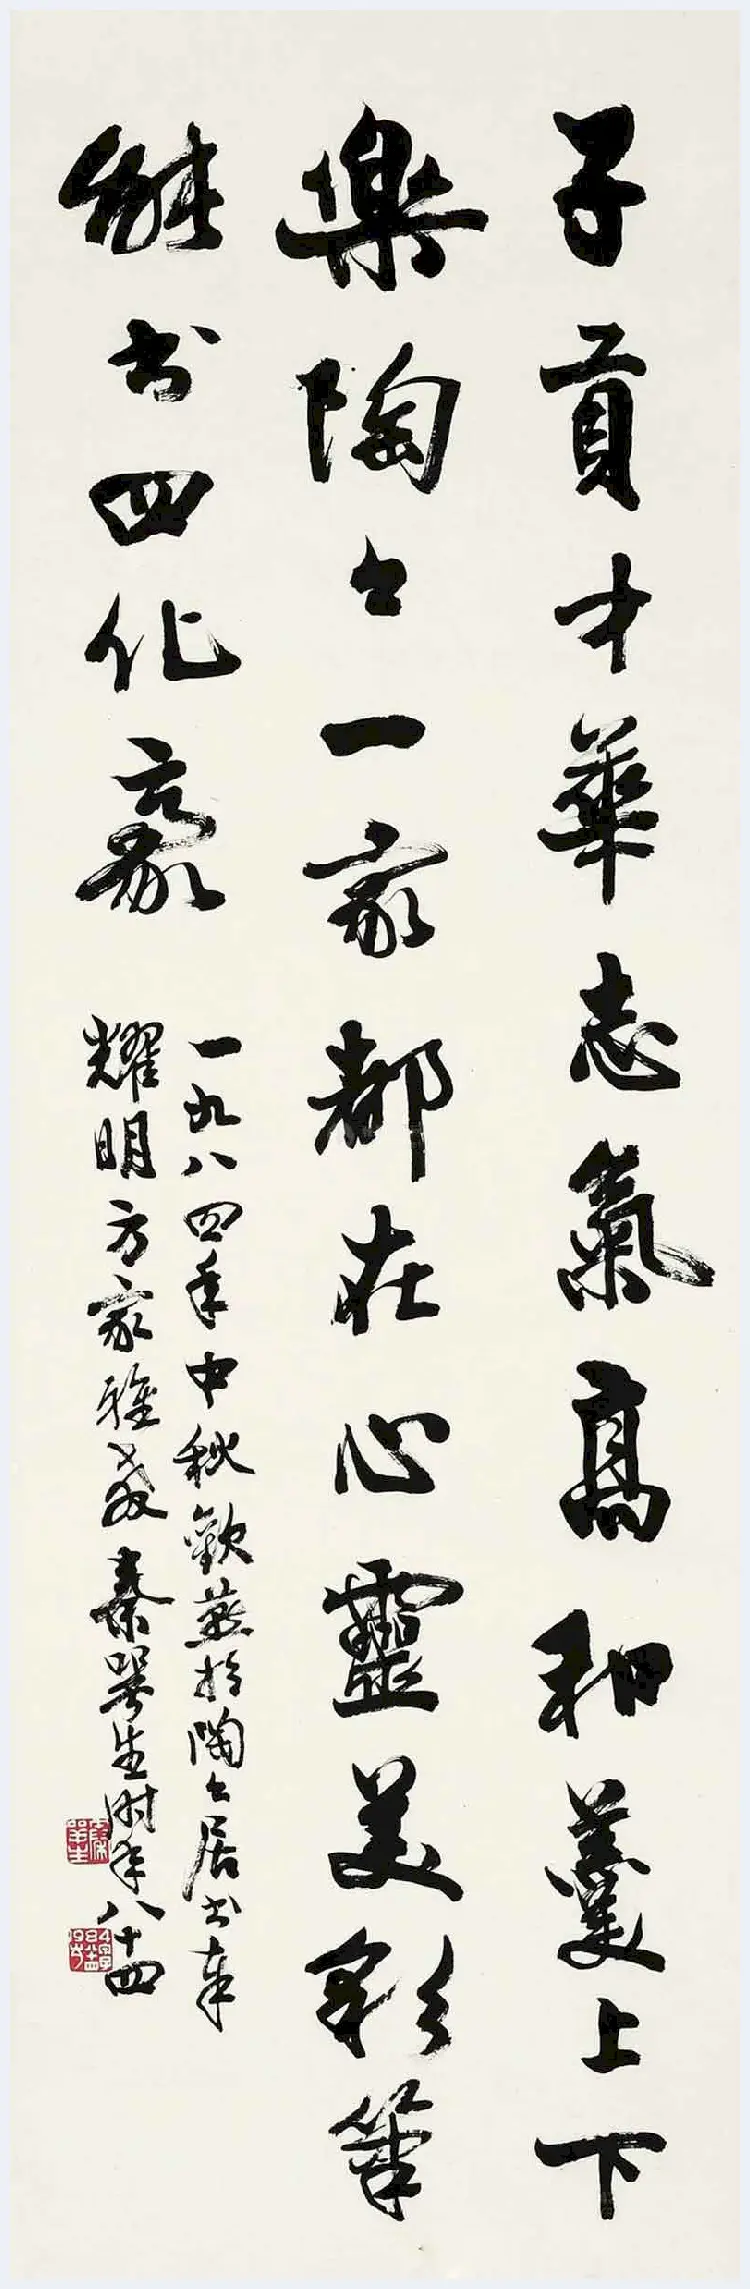 子貢才華志氣高和羹上下
樂陶〻一家都在心靈美彩筆
能书四化豪
一九八四年中秋歡燕於陶〻居书奉
耀明方家雅教秦咢生时年八十四